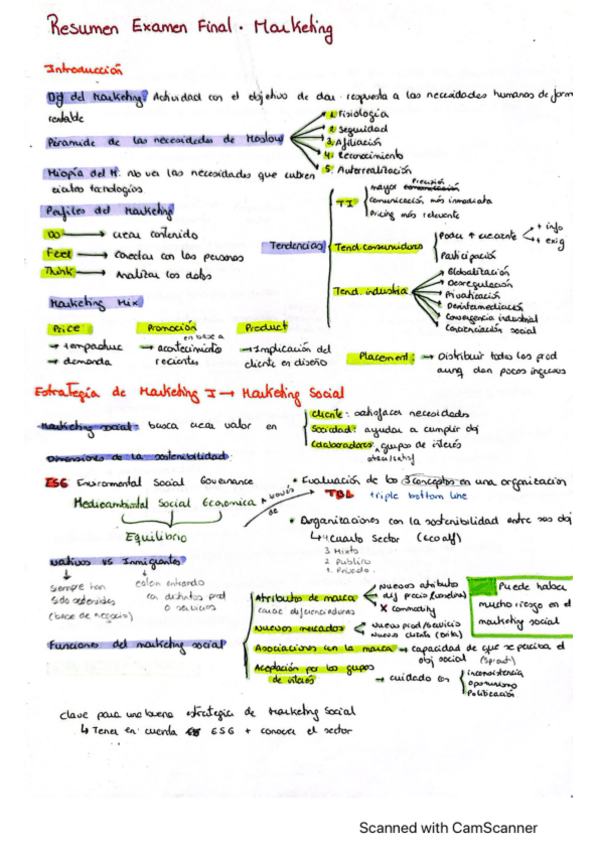 Resumen Examen Final. Marketing
Introducción
Def del Marketing: Actividad con el objetivo de dar respuesta a las necesidades humanas de form
rentable
Pirámide de las necesidades de Maslow
1. Fisiología
2. Seguridad
3. Afiliación
4. Reconocimiento
5. Autorrealización
Miopía del M: no ver las necesidades que cubren
ciertas tecnologías
Perfiles del Marketing
DO → crear contenido
Feel → conectar con las personas
Think → Analizar los datos
Tendencias
TI
mayor precisión
comunicación más inmediata
Pricing más relevante
Tend. consumidores
Poder ↑ creciente
+ info
+ exig
Participación
Tend. industria
Globalización
Desregulación
Privatización
Desintermediación
Convergencia industrial
Concienciación social
Marketing Mix
Price
→ demanda
Promoción
en base a
→ acontecimiento
recientes
Product
→ Implicación del
cliente en diseño
Placement: → Distribuir todos los prod
aunq dan pocos ingresos
Estrategia de Marketing I → Marketing Social
Marketing social: busca crear valor en
cliente: satisfacer necesidades
Sociedad: ayudar a cumplir obj
Colaboradores, grupos de interés
Dimensiones de la sostenibilidad:
ESG Enviromental Social Governance
Medioambiental Social Económica
a través
de
Equilibrio
• Evaluación de los 3 conceptos en una organización
TBL triple bottom line
• Organizaciones con la sostenibilidad entre sus obj
↳ 4 Cuarto Sector (Ecoalf)
3. Mixto
2. Publico
1. Privado.
Nativos VS Inmigrantes
siempre han
sido sostenibles
(base de negocio)
están entrando
con distintos prod
o servicios
Funciones del marketing social
Atributos de marca
crear diferenciadores
Nuevos atributo
dif precio
X commodity
Nuevos mercados
Nuevo prod/servicio
Nuevo cliente
Asociaciones con la marca → capacidad de que se perciba el
obj social
Aceptación por los grupos
de interés
→ cuidado con
inconsistencia
Oportunismo
Politización
Puede haber
mucho riesgo en el
marketing social
clave para una buena estrategia de Marketing Social
↳ Tener en cuenta ESG + conocer el sector
Scanned with CamScanner